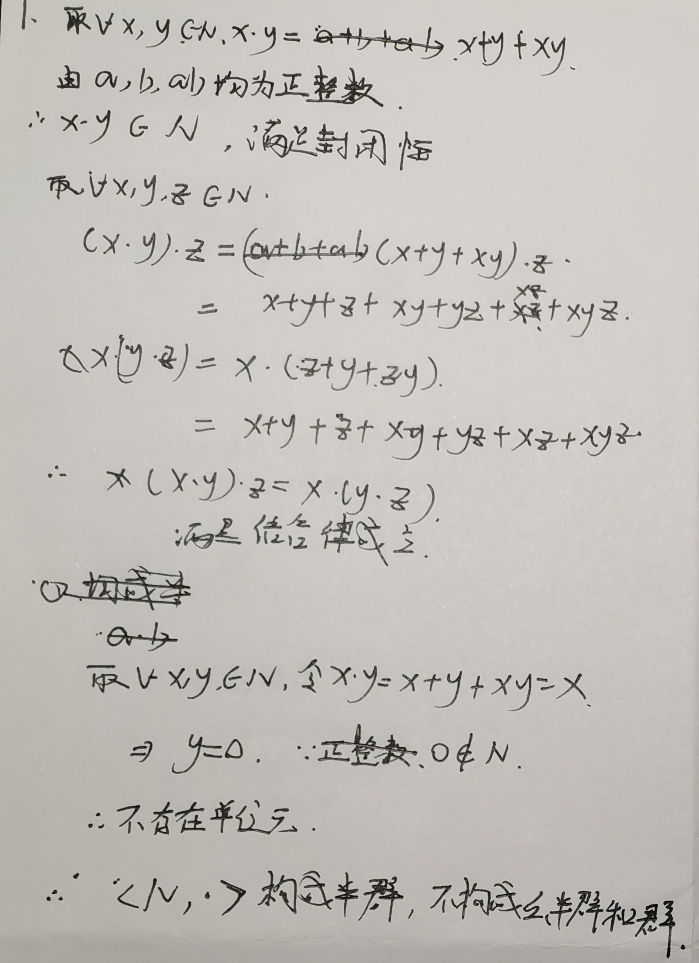 1. 取∀x, y∈N. x·y = a+b+ab x+y+xy.
由a, b, ab均为正整数.
∴ x·y ∈ N, 满足封闭性
取∀x, y, z ∈N.
(x·y)·z = (a+b+ab) (x+y+xy)·z.
= x+y+z+xy+yz+xz+xyz.
x·(y·z) = x·(z+y+zy).
= x+y+z+xy+yz+xz+xyz.
∴ (x·y)·z = x·(y·z).
满足结合律成立.
构成半
a·b
取∀x, y, ∈N, 令x·y = x+y+xy = x.
⇒ y=0. ∵正整数. 0∉N.
∴不存在单位元.
∴ <N, ·> 构成半群, 不构成么半群和群.